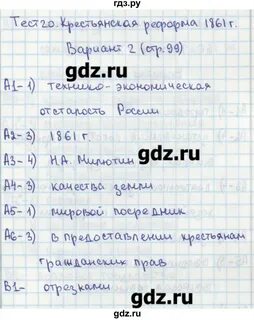 Тест 20. Крестьянская реформа 1861 г.
Вариант 2 (стр. 99)
А1- 1) технико-экономическая
отсталость России
А2- 3) 1861 г.
А3- 4) Н.А. Милютин
А4- 3) качества земли
А5- 1) мировой посредник
А6- 3) в предоставлении крестьянам
гражданских прав
В1- отрезками